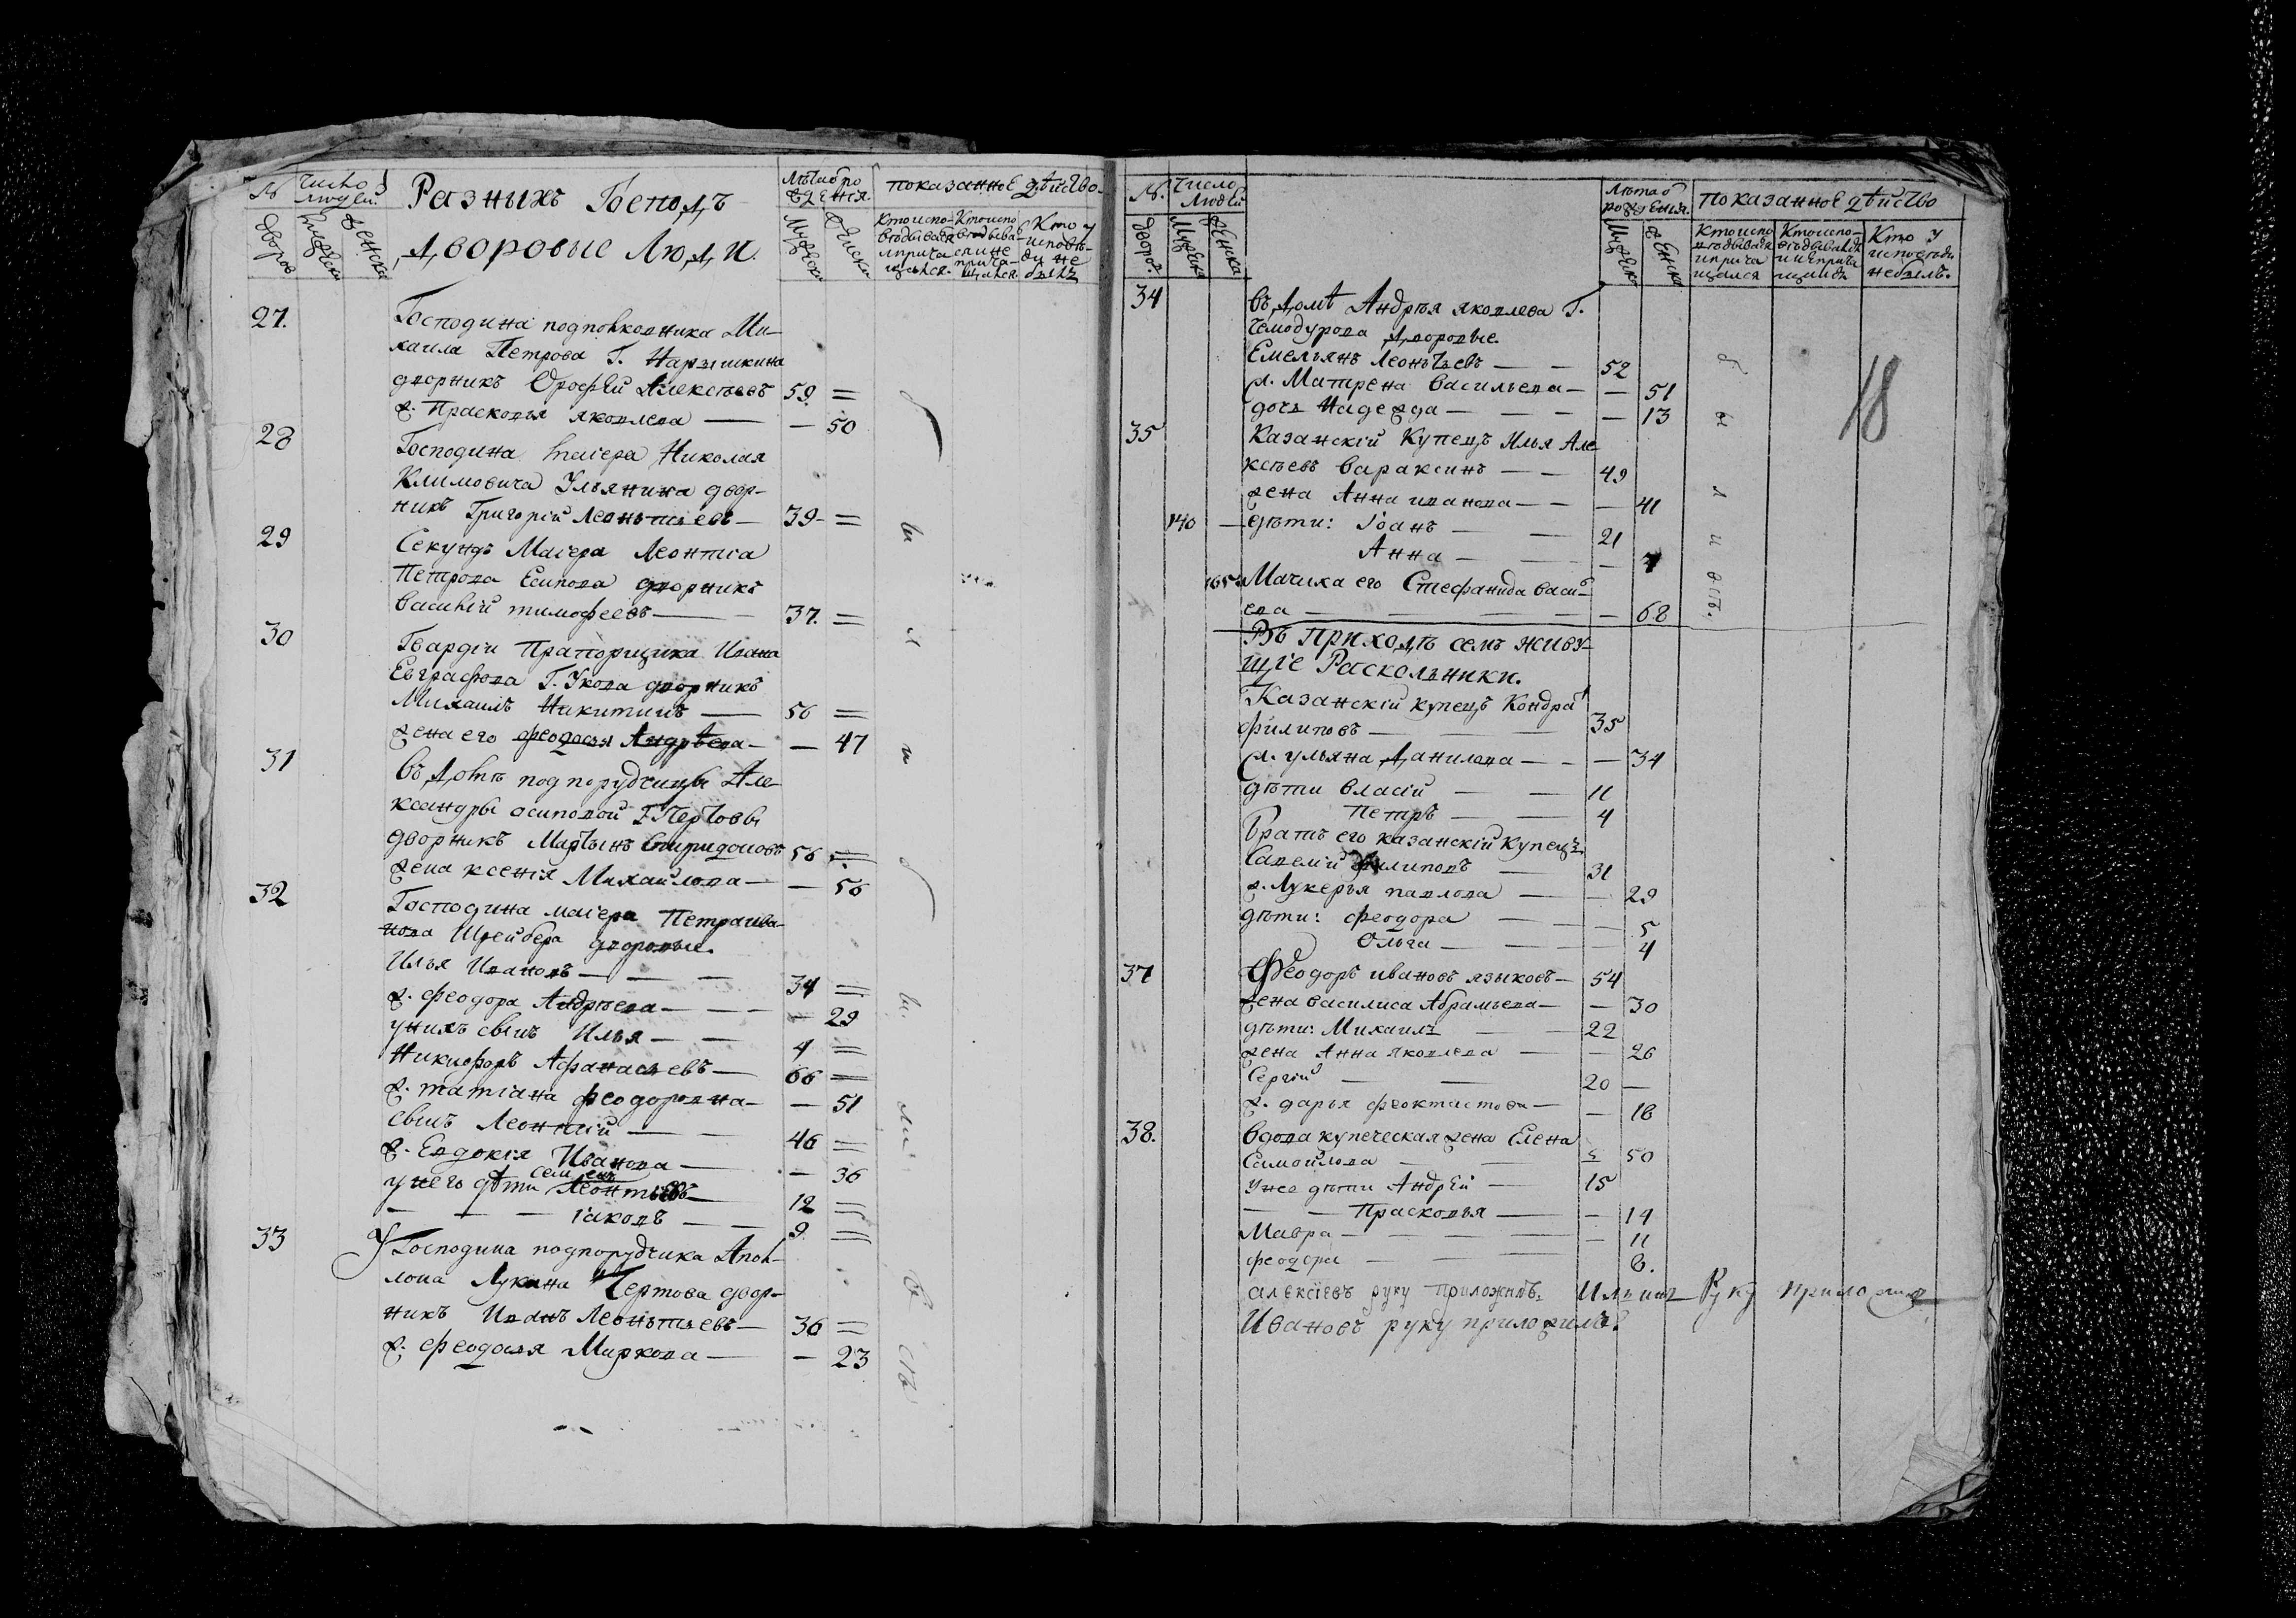 № Число людей.
Разныхъ Господъ
Лѣта рожденія.
показанное дѣйство
дворовые Люди.
дворов
Мужеска
Женска
Мужеска
Женска
Кто исповѣдывался и причащался.
Кто исповѣдывался и не причащался.
Кто у исповѣди не былъ
27. Господина подполковника Ми-
хаила Петрова Г. Нарышкина
дворникъ Ѳрофѣй Алексѣевъ 59. =
ж. Прасковья яковлева — — 50
28 Господина маіера Николая
Климовича Ульянина двор-
никъ Григорій Леонтьевъ — 39 =
29 Секундъ Маіера Леонтіа
Петрова Есипова дворникъ
василій тимофеевъ — 37. =
30 Гвардіи Прапорщика Ивана
Евграфова Г. Укова дворникъ
Михаилъ Никитинъ — 56 =
жена его феодосья Андрѣева — — 47
31 въ домѣ подпорудчицы Але-
ксандры осиповой Г. Пертовы
дворникъ Мартынъ Спиридоновъ 56 =
жена ксенія Михайлова — — 56
32 Господина маіера Петра ива-
нова Шрейбера дворовые.
Илья Ивановъ — — 34 =
ж. феодора Андрѣева — — 29
у нихъ сынъ Илья — — 4 =
Никифоръ Афанасьевъ — 66 =
ж. татіана феодоровна — — 51
сынъ Леонтій — — 46 =
ж. Евдокія Иванова — — 36
у него дѣти Семенъ Леонтьевъ — 12 =
— — — іаковъ — — 9 =
33 У Господина подпорудчика Апол-
лона Лукина Чертова двор-
никъ Иванъ Леонтьевъ — 36 =
ж. феодосья Маркова — — 23
№. Число людей
Лѣта рожденія.
показанное дѣйство
дворов.
Мужеска
Женска
Мужеска
Женска
Кто исповѣдывался и причащался
Кто исповѣдывался и не причащался
Кто у исповѣди не былъ.
18
34 въ домѣ Андрѣя яковлева Г.
Чемодурова дворовые.
Емельянъ Леонтьевъ — — 52
ж. Матрена васильева — — 51
дочь Надежда — — — 13
35 Казанскій Купецъ Илья Але-
ксѣевъ вараксинъ — — 49
жена Анна иванова — — — 41
140 — дѣти: Іоанъ — — 21
Анна — — — 7
165 Мачиха его Стефанида васи-
ева — — — 68
Въ приходѣ семъ живу-
щіе Раскольники.
Казанскій купецъ Кондрат
филиповъ — — 35
ж. ульяна Данилова — — — 34
дѣти власій — — 11
Петръ — — 4
Братъ его казанскій купецъ
Савелій филиповъ — 31
ж. Лукерья павлова — — 29
дѣти: феодора — — — 5
Ольга — — — 4
37 Феодоръ ивановъ языковъ — 54
жена василиса Абрамьева — — 30
дѣти: Михаилъ — — 22
жена Анна яковлева — — 26
Сергій — — 20 —
ж. дарья феоктистова — — 18
38. вдова купеческая жена Елена
Самойлова — — 50
у нее дѣти Андрѣй — 15
— — Прасковья — — 14
Мавра — — — 11
феодора — — 6.
алексіевъ руку приложилъ. Ильинъ Руку приложилъ
Ивановъ руку приложилъ